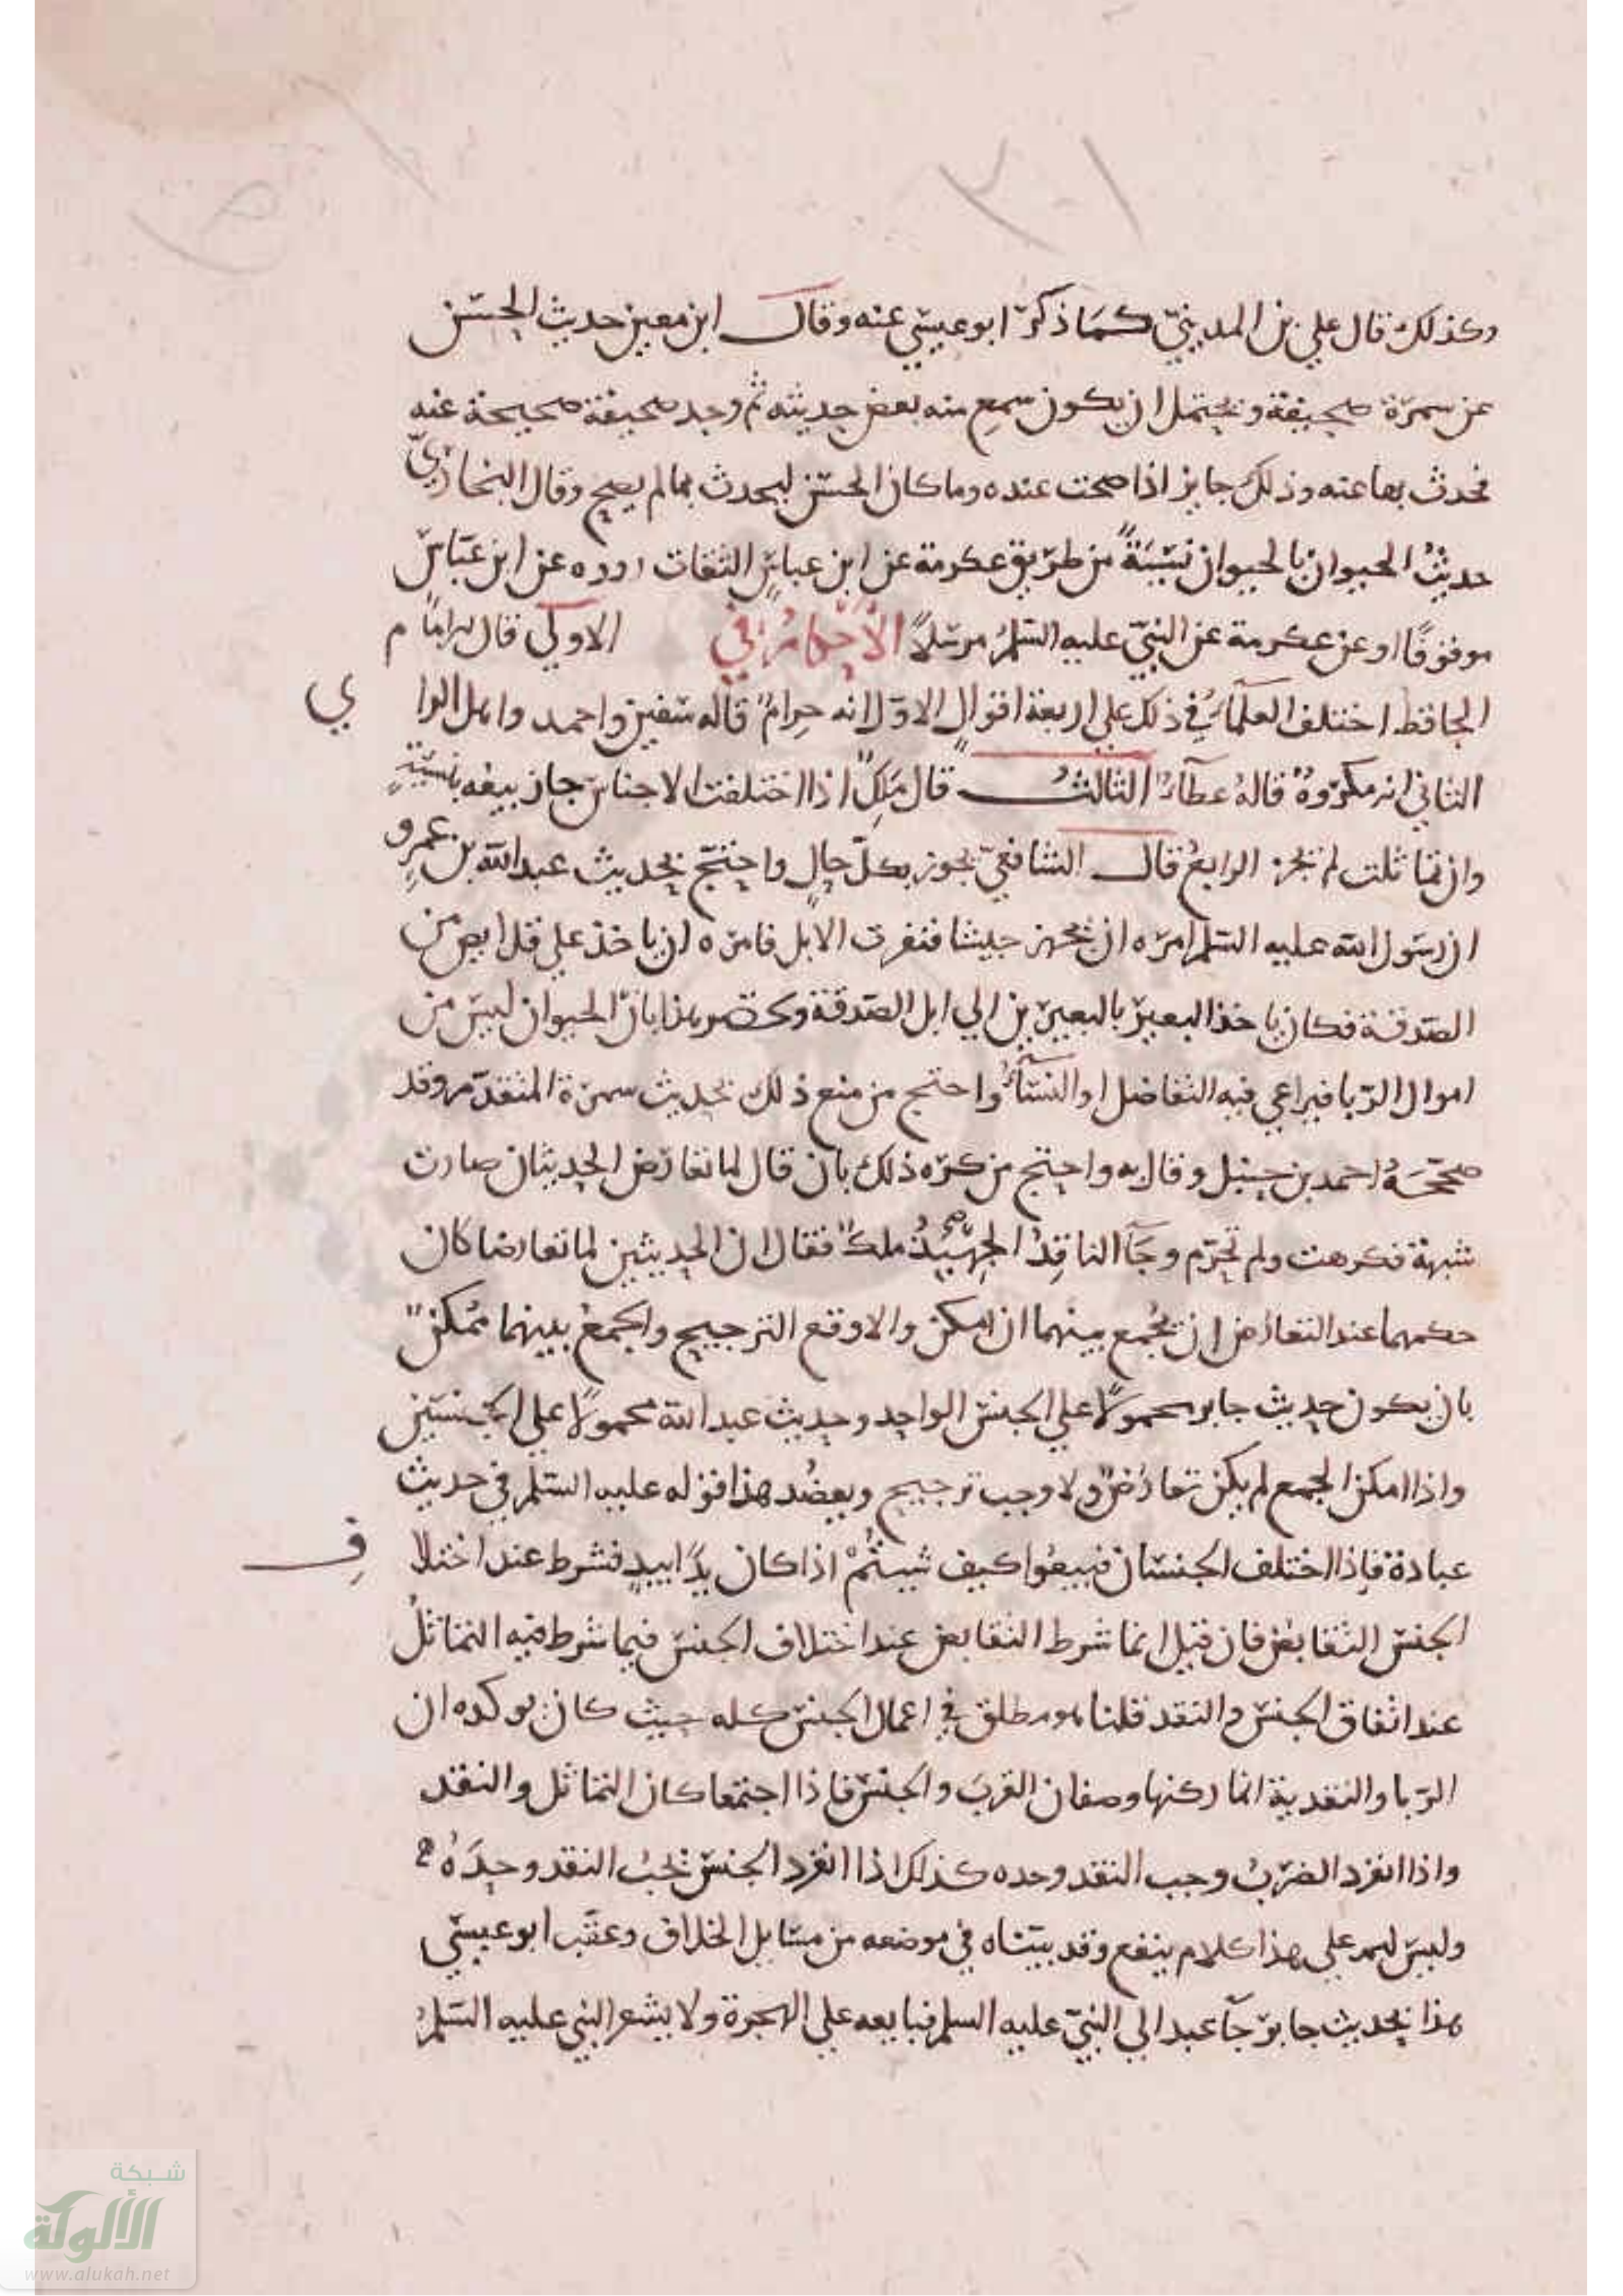 وكذلك قال علي بن المديني كما ذكر ابو عيسي عنه وقال ابن معين حديث الحسن
عن سمرة صحيفة ويحتمل ان يكون سمع منه بعض حديثه ثم وجد صحيفة صحيحة عنه
فحدث بها عنه وذلك جايز اذا صحت عنده وما كان الحسن ليحدث بما لم يصح وقال البخاري
حديثُ الحيوان بالحيوان نسيئةً من طريق عكرمة عن ابن عباسٍ الثقات رووه عن ابن عباس
موقوفًا او عن عكرمة عن النبي عليه السلم مرسلاً الأحكام في الاولي قال الامام
الحافظ اختلف العلماء في ذلك علي اربعة اقوال الاول انه حرام قاله سفين واحمد واهل الراي
الثاني انه مكروه قاله عطاء الثالث قال ملك اذا اختلفت الاجناس جاز بيعه بنسيئةٍ
وان تماثلت لم يجز الرابع قال الشافعي يجوز بكل حالٍ واحتج بحديث عبد الله بن عمرو
ان رسول الله عليه السلم امره ان يجهز جيشا فنفرت الابل فامره ان ياخذ علي قلايص من
الصدقة فكان ياخذ البعير بالبعيرين الي ابل الصدقة بان الحيوان ليس من
اموال الربا فيراعي فيه التفاضل او النساء واحتج من منع ذلك بحديث سمرة المتقدم وقد
صححه احمد بن حنبل وقال به واحتج من كره ذلك بان قال لما تعارض الحديثان صارت
شبهة فكرهت ولم تحرم وجآ الناقد الجهبذ ملك فقال ان الحديثين لما تعارضا كان
حكمهما عند التعارض ان يجمع بينهما ان امكن والا وقع الترجيح والجمع بينهما ممكن
بان يكون حديث جابر محمولًا علي الجنس الواحد وحديث عبد الله محمولًا علي الجنسين
واذا امكن الجمع لم يكن تعارض ولا وجب ترجيح ويعضد هذا قوله عليه السلم في حديث
عبادة فاذا اختلف الجنسان فبيعوا كيف شيتم اذا كان يدًا بيدٍ فشرط عند اختلاف
الجنس التقابض فان قيل انما شرط التقابض عند اختلاف الجنس فيما شرط فيه التماثل
عند اتفاق الجنس والنقد قلنا هو مطلق في اعمال الجنس كله حيث كان يوكده ان
الربا والنقدية انما ركنها وصفان القرب والجنس فاذا اجتمعا كان التماثل والنقد
واذا انفرد الضرب وجب النقد وحده كذلك اذا انفرد الجنس يجب النقد وحده
وليس لهم علي هذا كلام ينفع وقد بيناه في موضعه من مسايل الخلاف وعقب ابو عيسي
هذا بحديث جابر جآ عبد الي النبي عليه السلم فبايعه علي الهجرة ولا يشعر النبي عليه السلم
شبكة
الألوكة
www.alukah.net